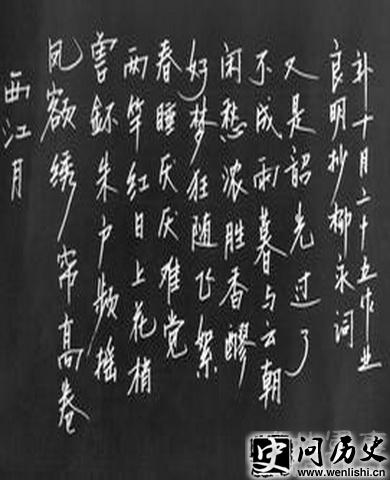 西江月
凤额绣帘高卷
朱户频摇
两竿红日上花梢
春睡厌厌难觉
好梦狂随飞絮
闲愁浓胜香醪
不成雨暮与云朝
又是韶光过了
良明抄柳永词
补十月二十五作业
史问历史
www.wenlishi.com